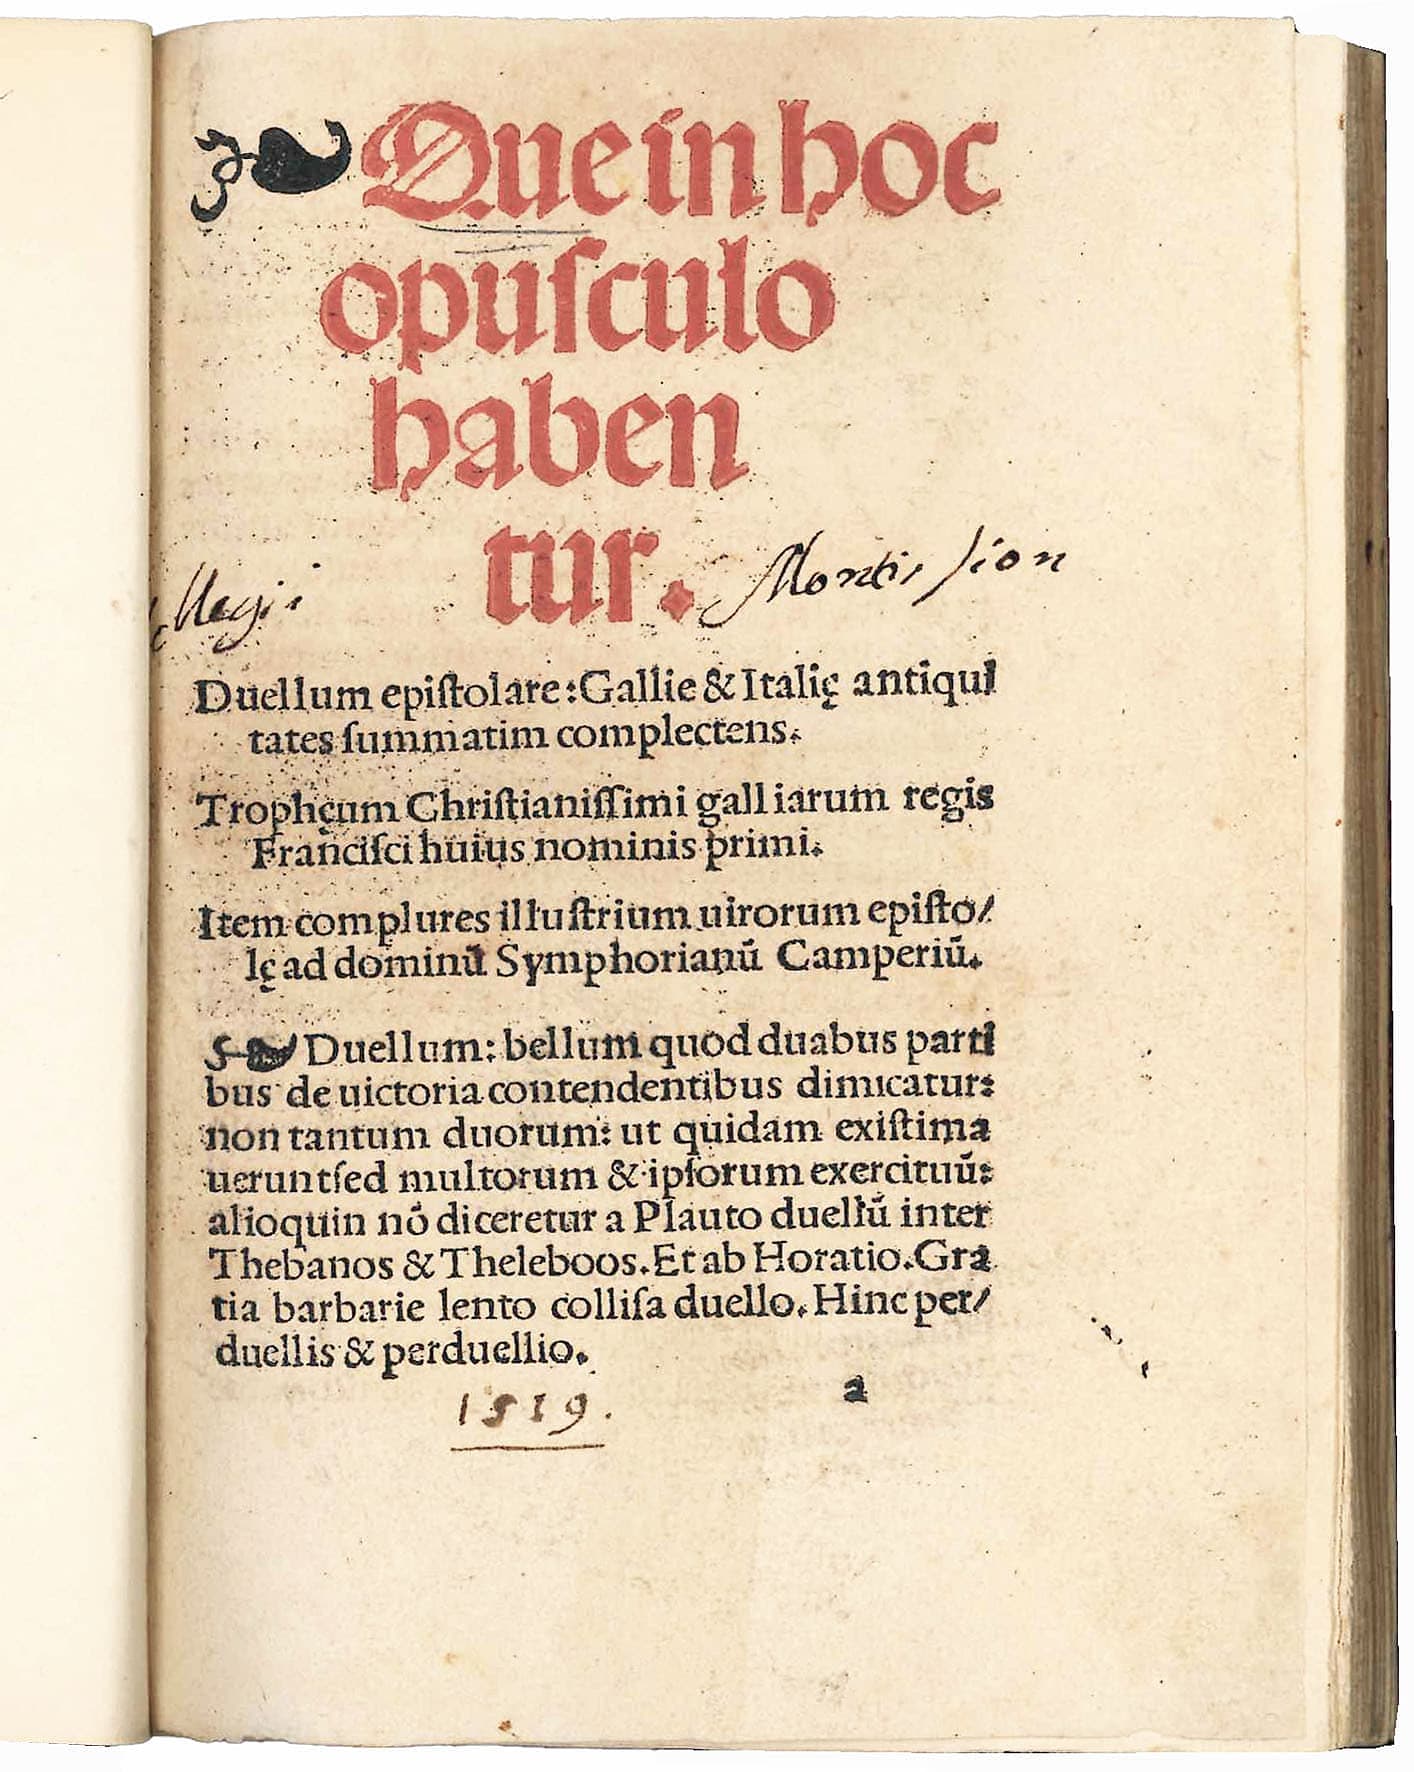 Que in hoc
opuſculo
haben
tur.
Montis sion
Duellum epiſtolare: Gallie & Italię antiqui
tates ſummatim complectens.
Trophęum Chriſtianiſſimi galliarum regis
Franciſci huius nominis primi.
Item complures illuſtrium uirorum epiſto/
lę ad dominū Symphorianū Camperiū.
Duellum: bellum quod duabus parti
bus de uictoria contendentibus dimicatur:
non tantum duorum: ut quidam exiſtima
uerunt ſed multorum & ipſorum exercituū:
alioquin nō diceretur a Plauto duellū inter
Thebanos & Theleboos. Et ab Horatio. Gra
tia barbarie lento colliſa duello. Hinc per/
duellis & perduellio.
a
1519.